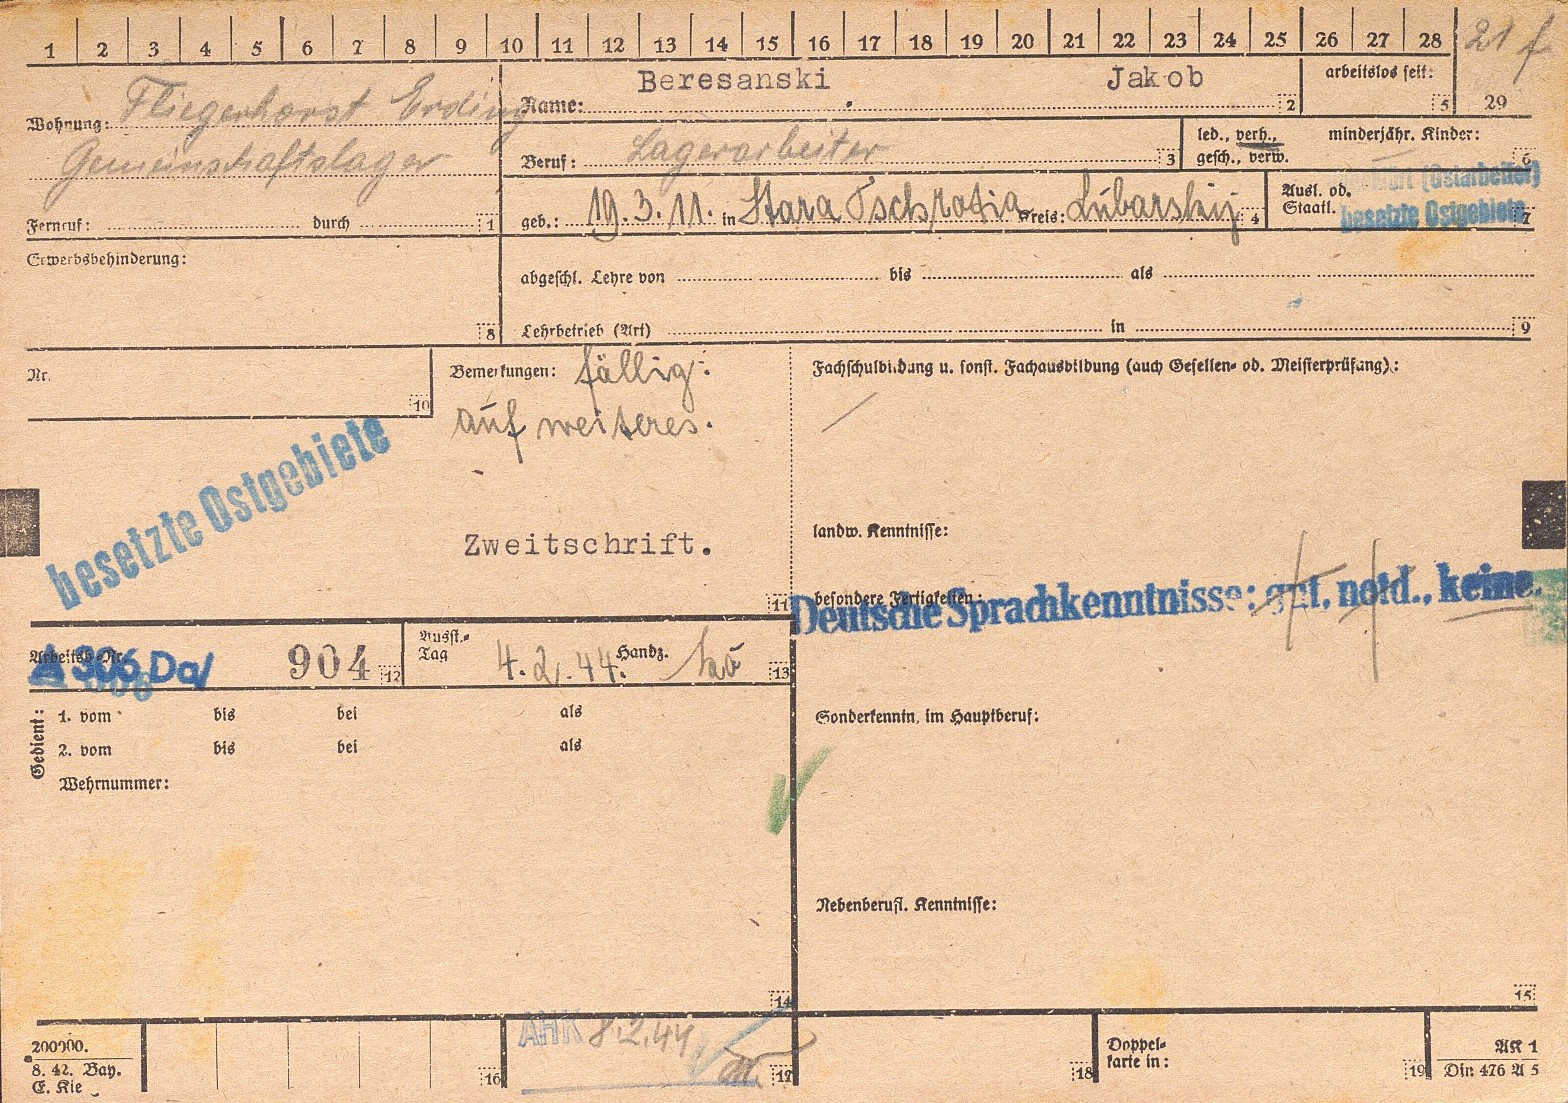 1 2 3 4 5 6 7 8 9 10 11 12 13 14 15 16 17 18 19 20 21 22 23 24 25 26 27 28 21 f
29
Wohnung: Fliegerhorst Erding
Gemeinschaftslager
Fernruf: durch 1
Name: Beresanski Jakob 2
arbeitslos seit: 5
Beruf: Lagerarbeiter 3
led., verh., gesch., verw.
minderjähr. Kinder: 6
geb.: 19.3.11. in Stara Tschrotia Kreis: Lubarskij 4
Ausl. od. Staatl. 7
(Ostarbeiter)
besetzte Ostgebiete
Erwerbsbehinderung: 8
abgeschl. Lehre von bis als
Lehrbetrieb (Art) in 9
Nr. 10
Bemerkungen: fällig:
auf weiteres.
besetzte Ostgebiete
Zweitschrift.
11
Fachschulbildung u. sonst. Fachausbildung (auch Gesellen- od. Meisterprüfung):
landw. Kenntnisse:
besondere Fertigkeiten:
Deutsche Sprachkenntnisse: gut, notd., keine.
Arbeitsb.-Nr. A 306 Da/ 904 12
Ausst.-Tag 4.2.44. Handz. 13
Gedient:
1. vom bis bei als
2. vom bis bei als
Wehrnummer:
14
Sonderkenntn. im Hauptberuf:
Nebenberufl. Kenntnisse:
15
200000.
8. 42. Bay.
E. Kie
16
AHK 8.2.44
17
18
Doppelkarte in: 19
AK 1
Din 476 A 5